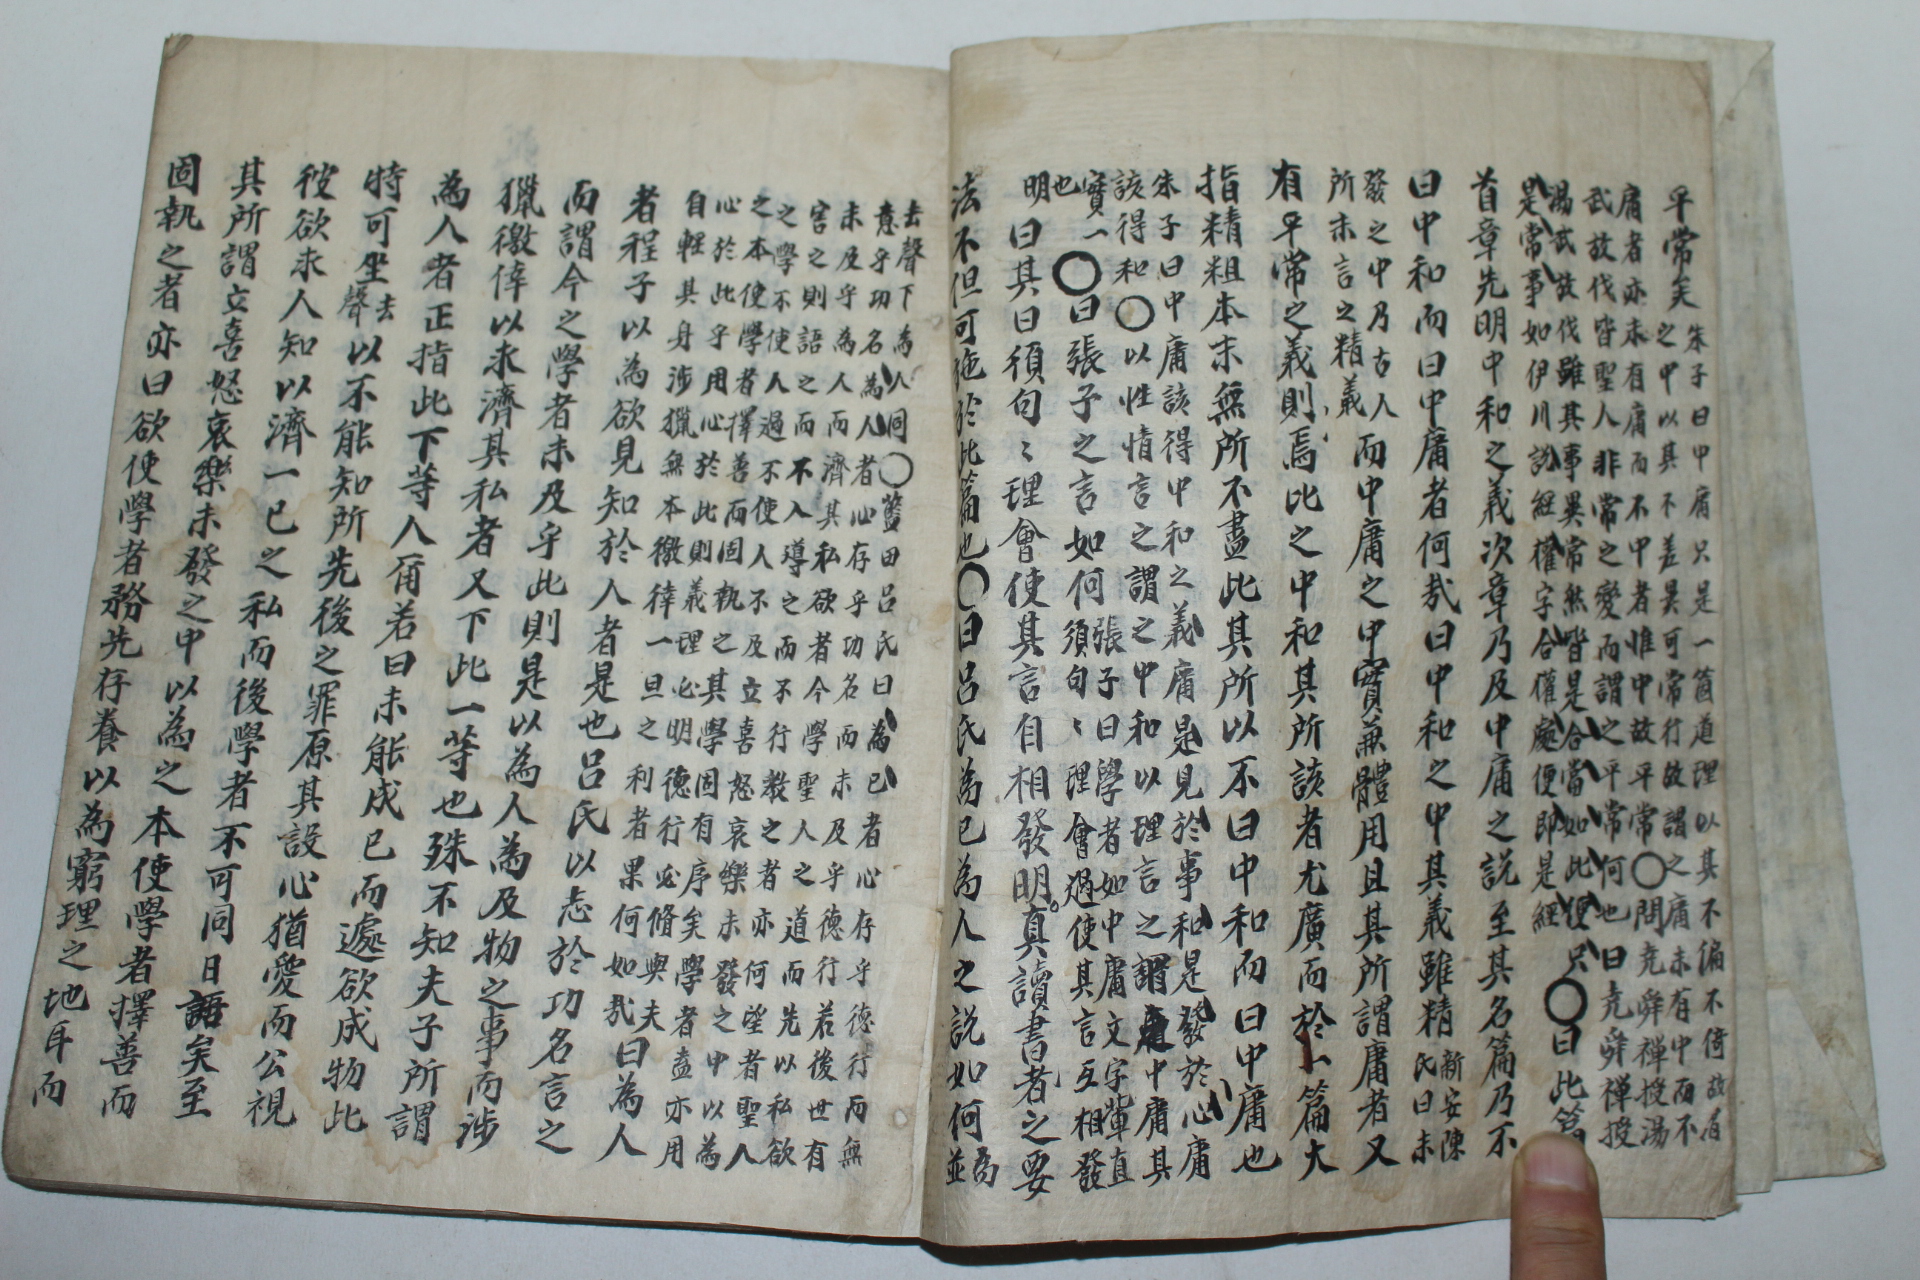 平常矣朱子曰中庸只是一箇道理以其不偏不倚故有
之中以其不差異可常行故謂之庸未有中而不
庸者亦未有庸而不中者惟中故平常○問堯舜禪授湯
武放伐皆聖人非常之變而謂之平常何也曰堯舜禪授
湯武放伐雖其事異常然皆是合當如此便只
是常事如伊川說經權字合權處便即是經
○曰此篇
首章先明中和之義次章乃及中庸之說至其名篇乃不
曰中和而曰中庸者何哉曰中和之中其義雖精新安陳
氏曰未
發之中乃古人
所未言之精義
而中庸之中實兼體用且其所謂庸者又
有平常之義則焉比之中和其所該者尤廣而於一篇大
指精粗本末無所不盡此其所以不曰中和而曰中庸也
朱子曰中庸該得中和之義庸是見於事和是發於心庸
該得和○以性情言之謂之中和以理言之謂中庸其
實一
也
○曰張子之言如何張子曰學者如中庸文字輩直
須句句理會過使其言互相發
明
曰其曰須句〻理會使其言自相發明真讀書者之要
法不但可施於此篇也○曰呂氏為己為人之說如何為
並
去聲下為人同○藍田呂氏曰為己者心存乎德行而無
意乎功名為人者心存乎功名而未及乎德行若後世有
未及乎為人而濟其私欲者今學聖人之道而先以私欲
害之則語之而不入導之而不行教之者亦何望者聖人
之學不使人過不使人不及立喜怒哀樂未發之中以為
之本使學者擇善而固執之其學固有序矣學者盍亦用
心於此乎用心於此則義理必明德行必脩與夫
自輕其身涉獵無本徼倖一旦之利者果何如哉
曰為人
者程子以為欲見知於人者是也呂氏以志於功名言之
而謂今之學者未及乎此則是以為人為及物之事而涉
獵徼倖以求濟其私者又下此一等也殊不知夫子所謂
為人者正指此下等人爾若曰未能成已而遽欲成物此
特可坐去
聲
以不能知所先後之罪原其設心猶愛而公視
彼欲求人知以濟一已之私而後學者不可同日語矣至
其所謂立喜怒哀樂未發之中以為之本使學者擇善而
固執之者亦曰欲使學者務先存養以為窮理之地耳而